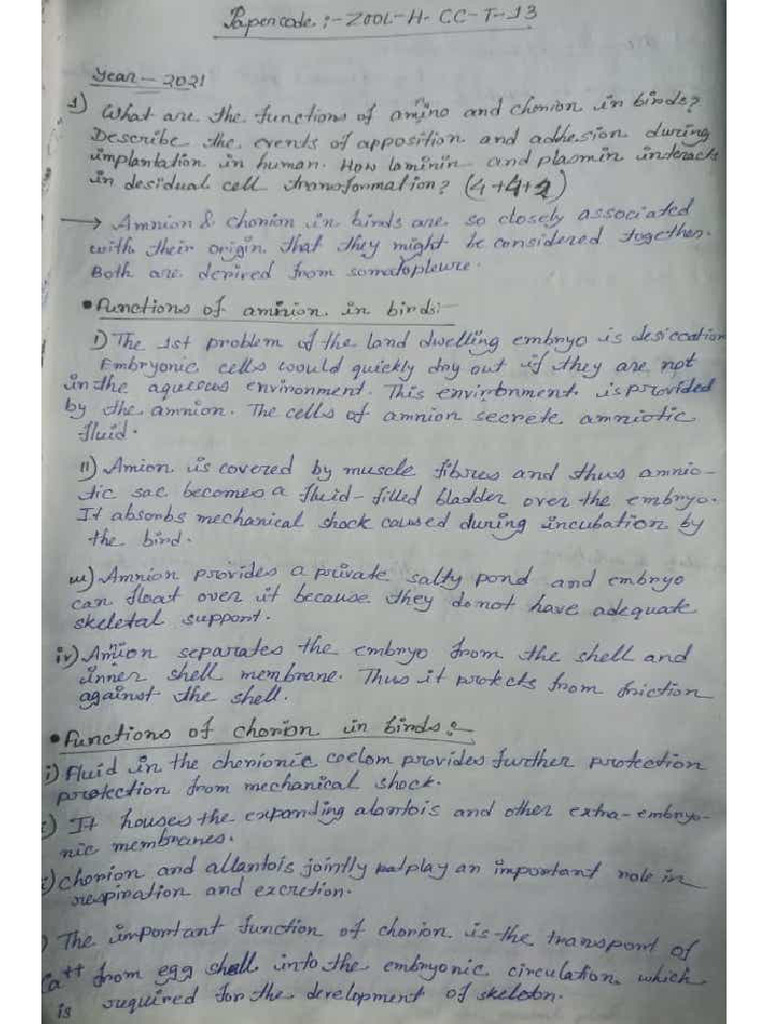 Paper code :- ZOOL-H- CC-T-13
Year - 2021
1) What are the functions of amino and chorion in birds?
Describe the events of apposition and adhesion during
implantation in human. How laminin and plasmin interacts
in desidual cell transformation? (4+4+2)
→ Amnion & chorion in birds are so closely associated
with their origin that they might be considered together.
Both are derived from somatopleure.
• Functions of amnion in birds:-
i) The 1st problem of the land dwelling embryo is desiccation
Embryonic cells would quickly dry out if they are not
in the aqueous environment. This environment is provided
by the amnion. The cells of amnion secrete amniotic
fluid.
ii) Amion is covered by muscle fibres and thus amnio-
tic sac becomes a fluid-filled bladder over the embryo.
It absorbs mechanical shock caused during incubation by
the bird.
iii) Amnion provides a private salty pond and embryo
can float over it because they do not have adequate
skeletal support.
iv) Amion separates the embryo from the shell and
inner shell membrane. Thus it protects from friction
against the shell.
• Functions of chorion in birds:-
i) Fluid in the chorionic coelom provides further protection
protection from mechanical shock.
) It houses the expanding alantois and other extra-embryo-
nic membranes.
i) Chorion and allantois jointly play an important role in
respiration and excretion.
) The important function of chorion is the transport of
Ca++ from egg shell into the embryonic circulation, which
is required for the development of skeleton.